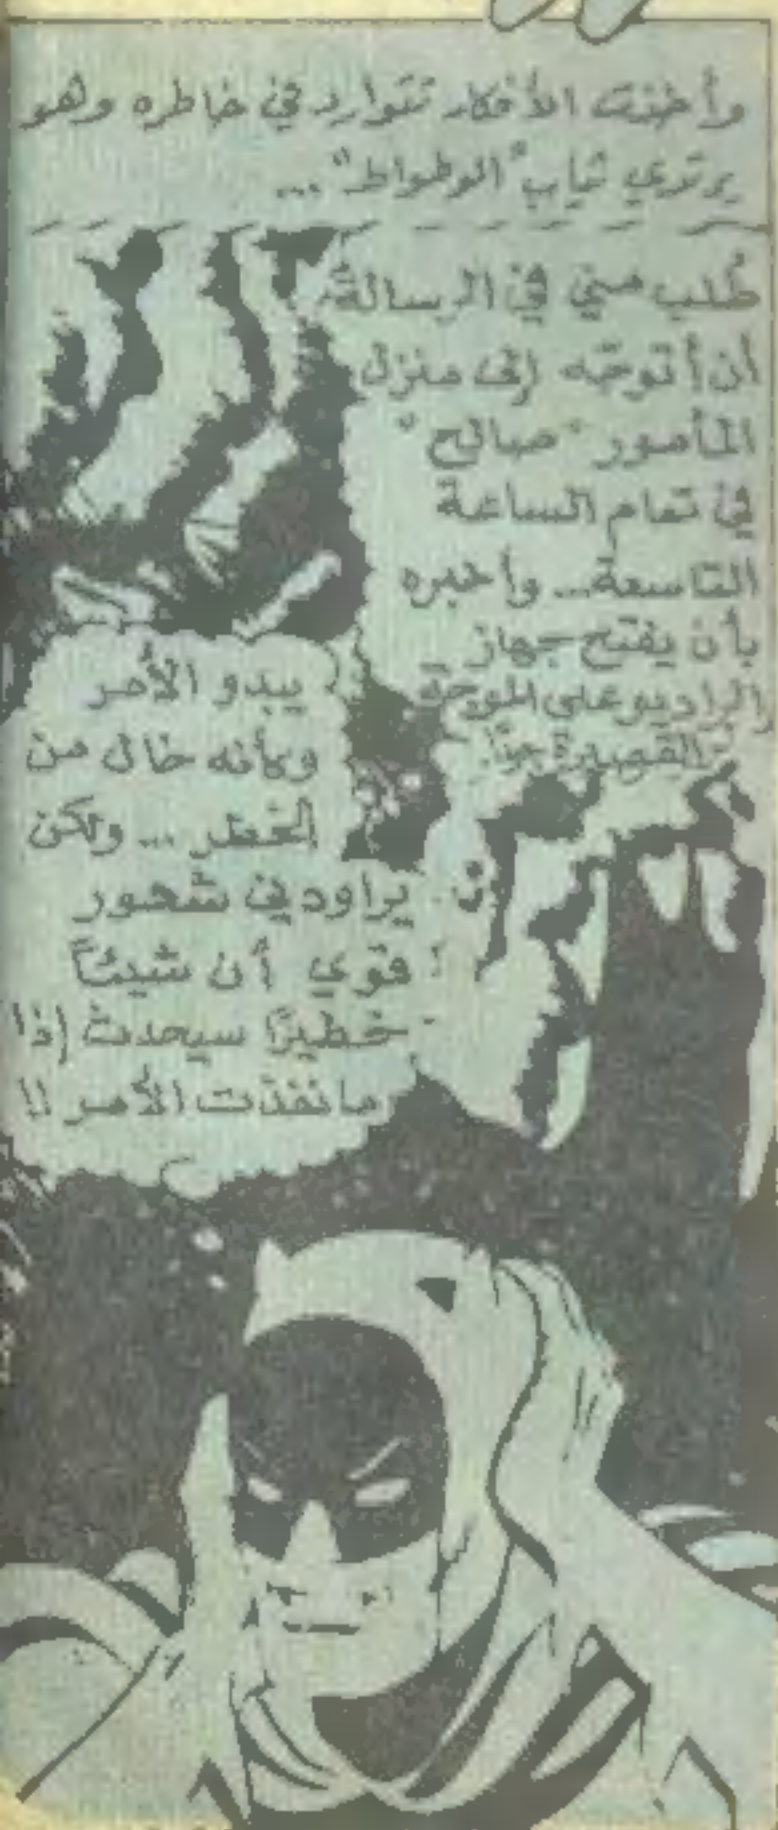 وأخذت الأفكار تتوارد في خاطره وهو
يرتدي ثياب "الوطواط" ...
طُلب مني في الرسالة
أن أتوجّه إلى منزل
المأمور "صالح"
في تمام الساعة
التاسعة... وأخبره
بأن يفتح جهاز
الراديو على الموجة
القصيرة جدًا.
يبدو الأمر
وكأنه خال من
الخطر ... ولكن
يراودني شعور
قوي أن شيئاً
خطيرًا سيحدث إذا
ما نفذت الأمر !!